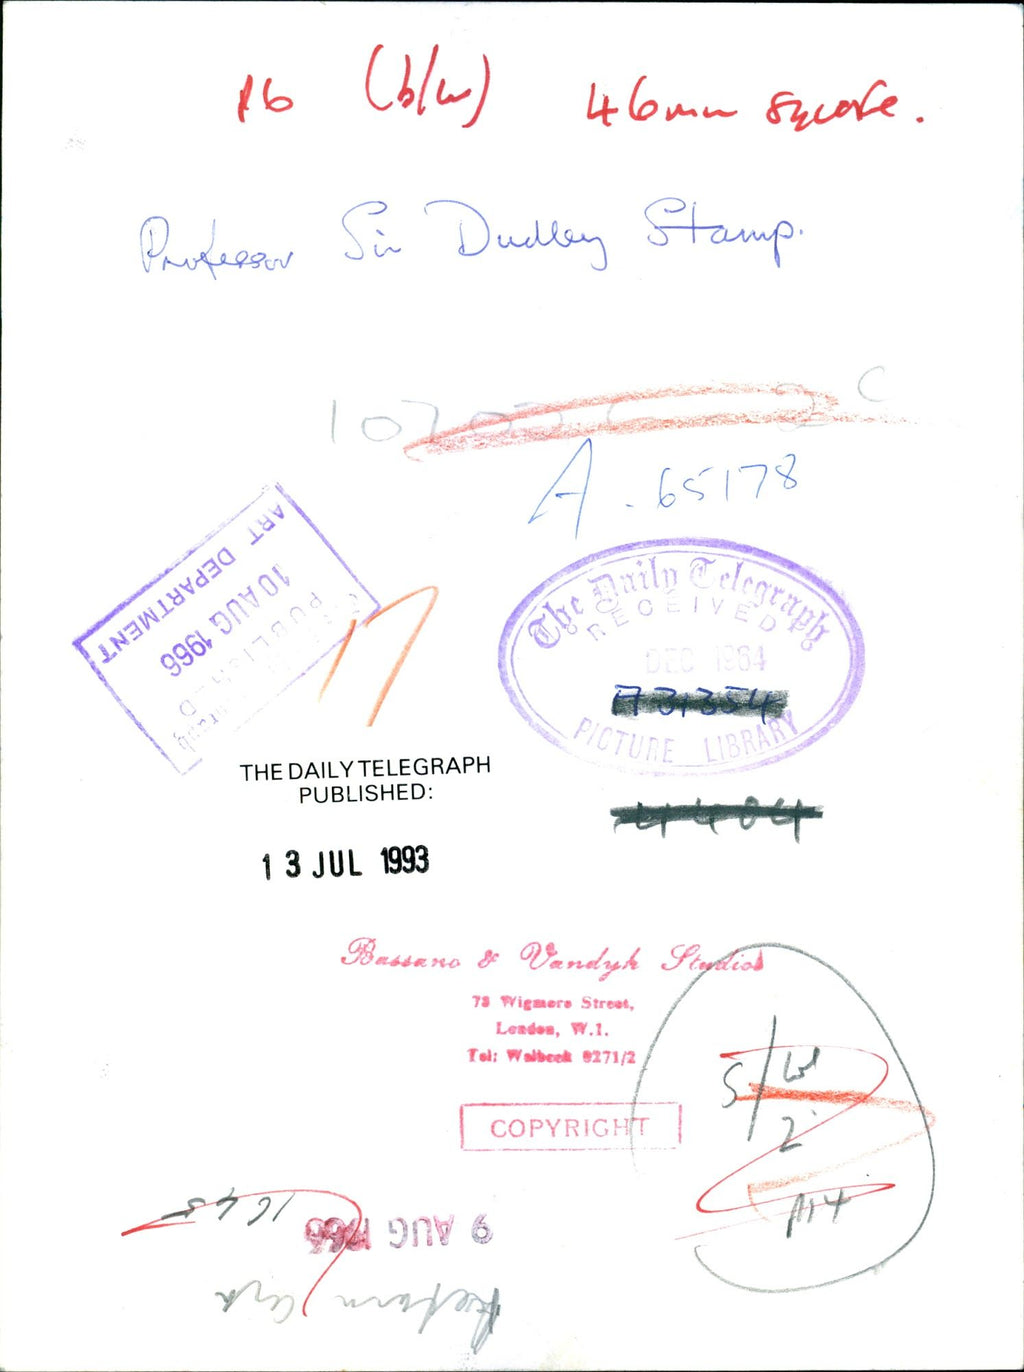 16 (b/w) 46mm square.
Professor Sir Dudley Stamp.
C
A. 65178
ART DEPARTMENT
10 AUG 1966
The Daily Telegraph
RECEIVED
DEC 1964
A31354
PICTURE LIBRARY
THE DAILY TELEGRAPH
PUBLISHED:
4404
13 JUL 1993
Bassano & Vandyk Studios
78 Wigmore Street,
London, W.1.
Tel: Welbeck 8271/2
COPYRIGHT
S/W
2
9 AUG 1966